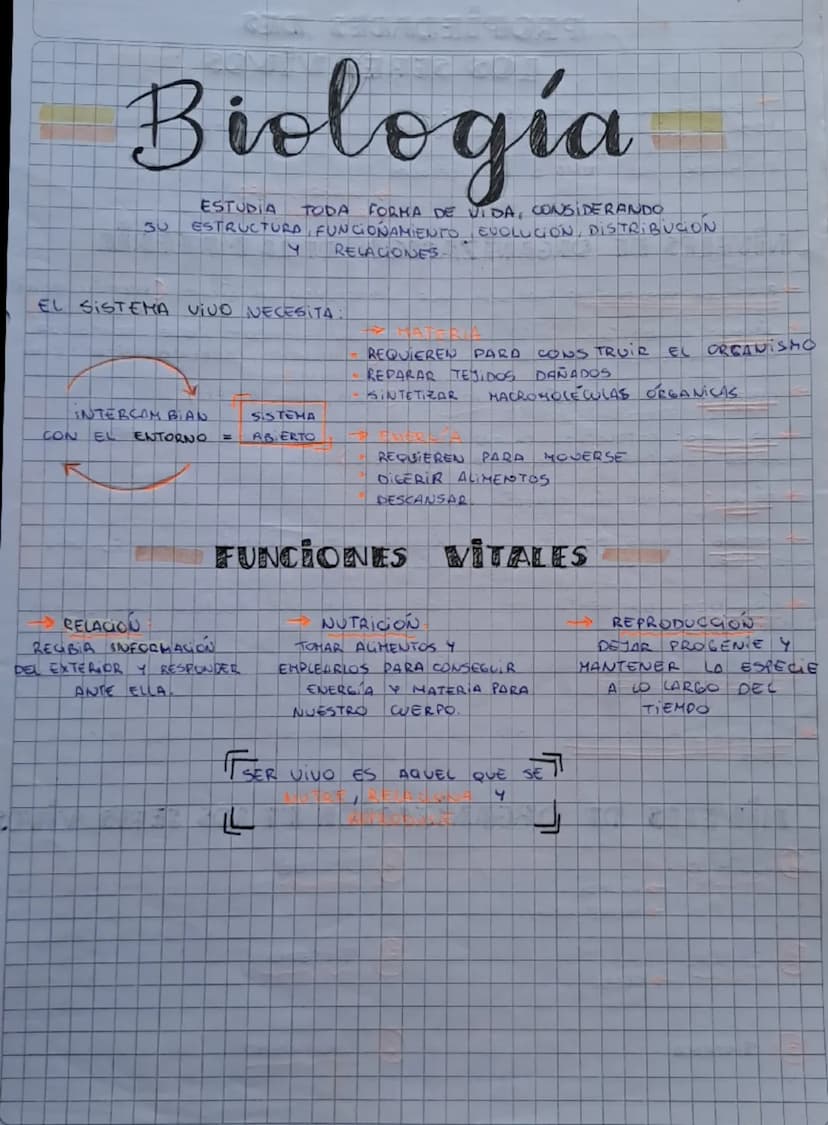 Biología
ESTUDIA TODA FORMA DE VIDA, CONSIDERANDO
SU ESTRUCTURA, FUNCIONAMIENTO, EVOLUCIÓN, DISTRIBUCIÓN
Y RELACIONES.
EL SISTEMA VIVO NECESITA:
→ MATERIA
• REQUIEREN PARA CONSTRUIR EL ORGANISMO
• REPARAR TEJIDOS DAÑADOS
• SINTETIZAR MACROMOLÉCULAS ORGANICAS
INTERCAMBIAN SISTEMA
CON EL ENTORNO = ABIERTO
→ ENERGÍA
• REQUIEREN PARA MOVERSE
• DIGERIR ALIMENTOS
• DESCANSAR
FUNCIONES VITALES
→ RELACIÓN:
RECIBIR INFORMACIÓN
DEL EXTERIOR Y RESPONDER
ANTE ELLA.
→ NUTRICIÓN:
TOMAR ALIMENTOS Y
EMPLEARLOS PARA CONSEGUIR
ENERGÍA Y MATERIA PARA
NUESTRO CUERPO.
→ REPRODUCCIÓN:
DEJAR PROGENIE Y
MANTENER LA ESPECIE
A LO LARGO DEL
TIEMPO
SER VIVO ES AQUEL QUE SE
NUTRE, RELACIONA Y
REPRODUCE